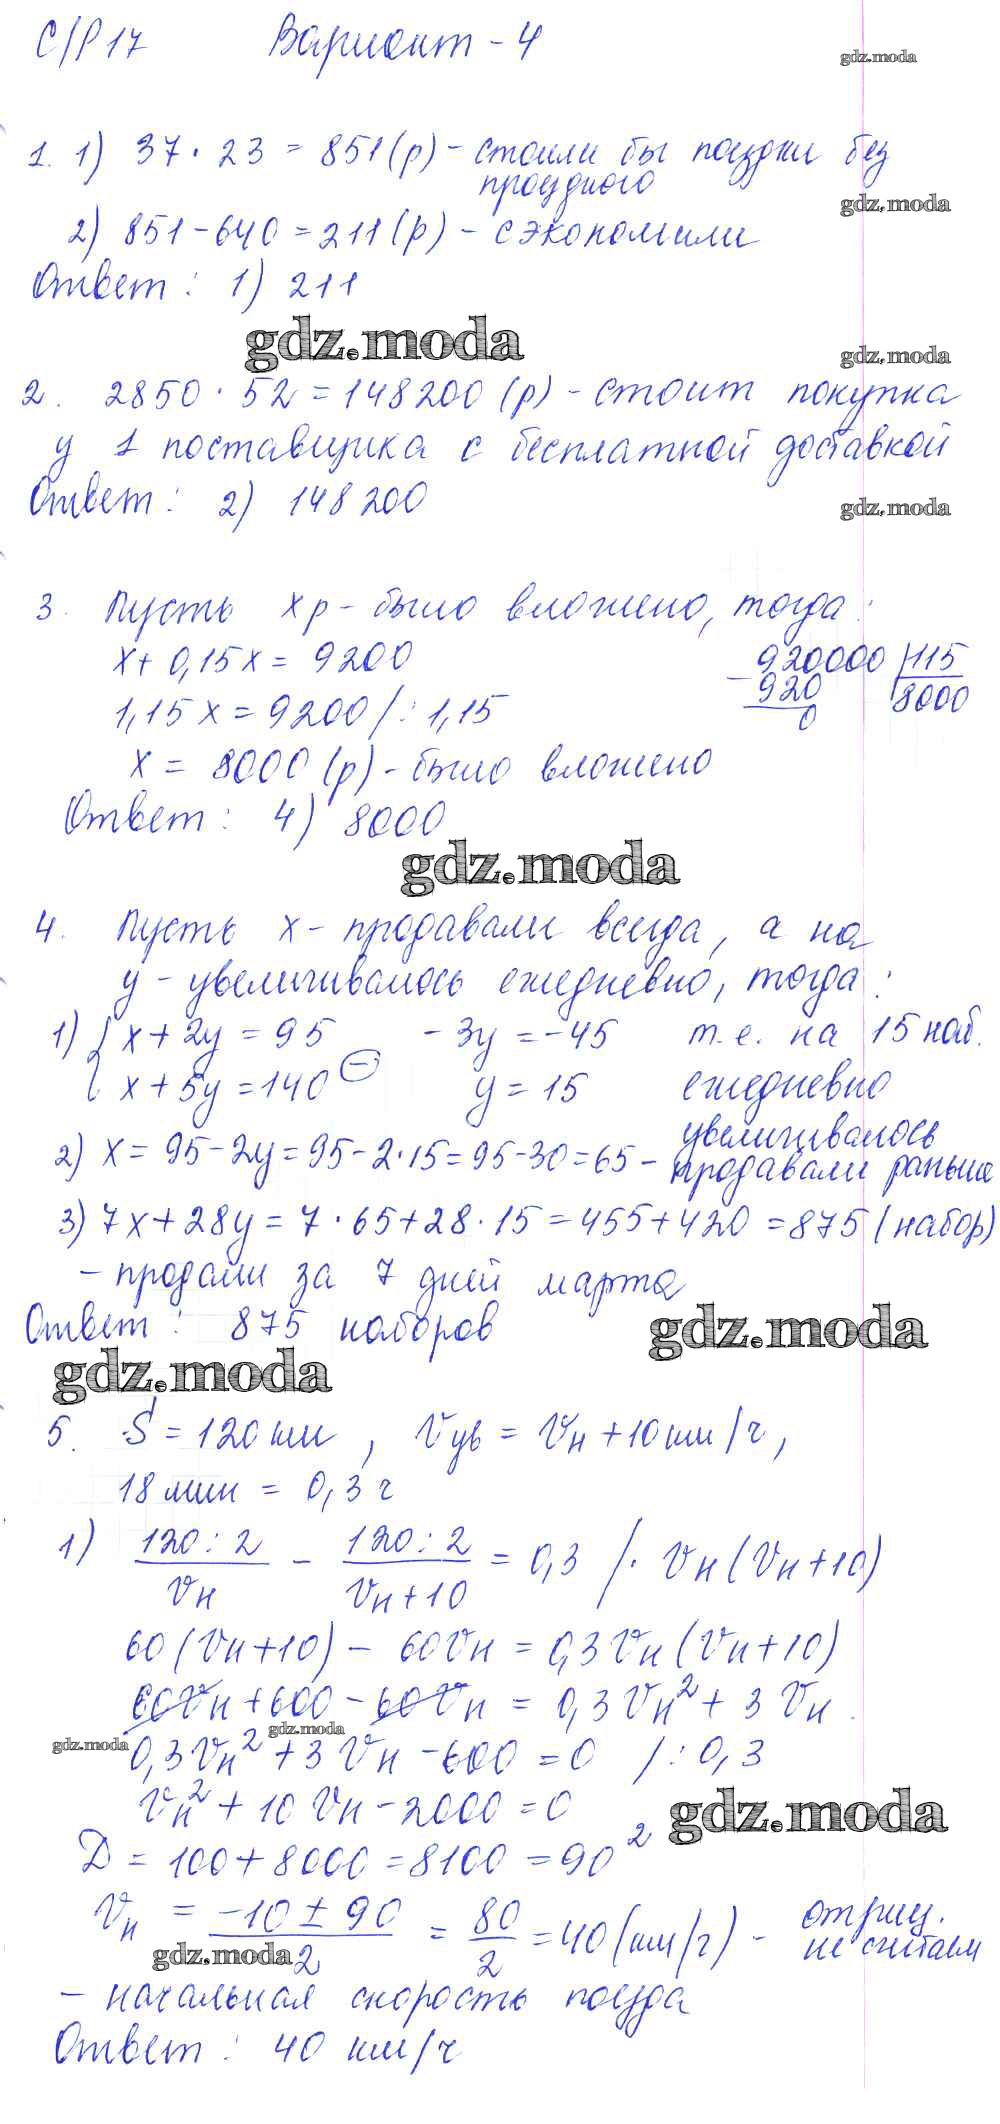 С/Р 17 Вариант - 4
gdz.moda
1. 1) 37 · 23 = 851 (р) - стоили бы поездки без
проездного
gdz.moda
2) 851 - 640 = 211 (р) - сэкономили
Ответ: 1) 211
gdz.moda
gdz.moda
2. 2850 · 52 = 148200 (р) - стоит покупка
у 1 поставщика с бесплатной доставкой
Ответ: 2) 148200
gdz.moda
3. Пусть х р - было вложено, тогда:
х + 0,15х = 9200
920000 115
- 920 8000
0
1,15х = 9200 /: 1,15
х = 8000 (р) - было вложено
Ответ: 4) 8000
gdz.moda
4. Пусть х - продавали всегда, а на
у - увеличивалось ежедневно, тогда:
1) { х + 2у = 95 - 3у = -45 т.е. на 15 наб.
{ х + 5у = 140 (-) у = 15 ежедневно
увеличивалось
2) х = 95 - 2у = 95 - 2 · 15 = 95 - 30 = 65 - продавали раньше
3) 7х + 28у = 7 · 65 + 28 · 15 = 455 + 420 = 875 (набор)
- продали за 7 дней марта
Ответ: 875 наборов
gdz.moda
gdz.moda
5. S = 120 км, Vув = Vн + 10 км/ч,
18 мин = 0,3 ч
1) 120:2/Vн - 120:2/Vн+10 = 0,3 /· Vн (Vн + 10)
60 (Vн + 10) - 60Vн = 0,3Vн (Vн + 10)
60Vн + 600 - 60Vн = 0,3Vн² + 3Vн.
gdz.moda
gdz.moda
0,3Vн² + 3Vн - 600 = 0 /: 0,3
Vн² + 10Vн - 2000 = 0
gdz.moda
D = 100 + 8000 = 8100 = 90²
Vн = -10 ± 90/2 = 80/2 = 40 (км/ч) - отриц.
не считаем
gdz.moda
- начальная скорость поезда
Ответ: 40 км/ч